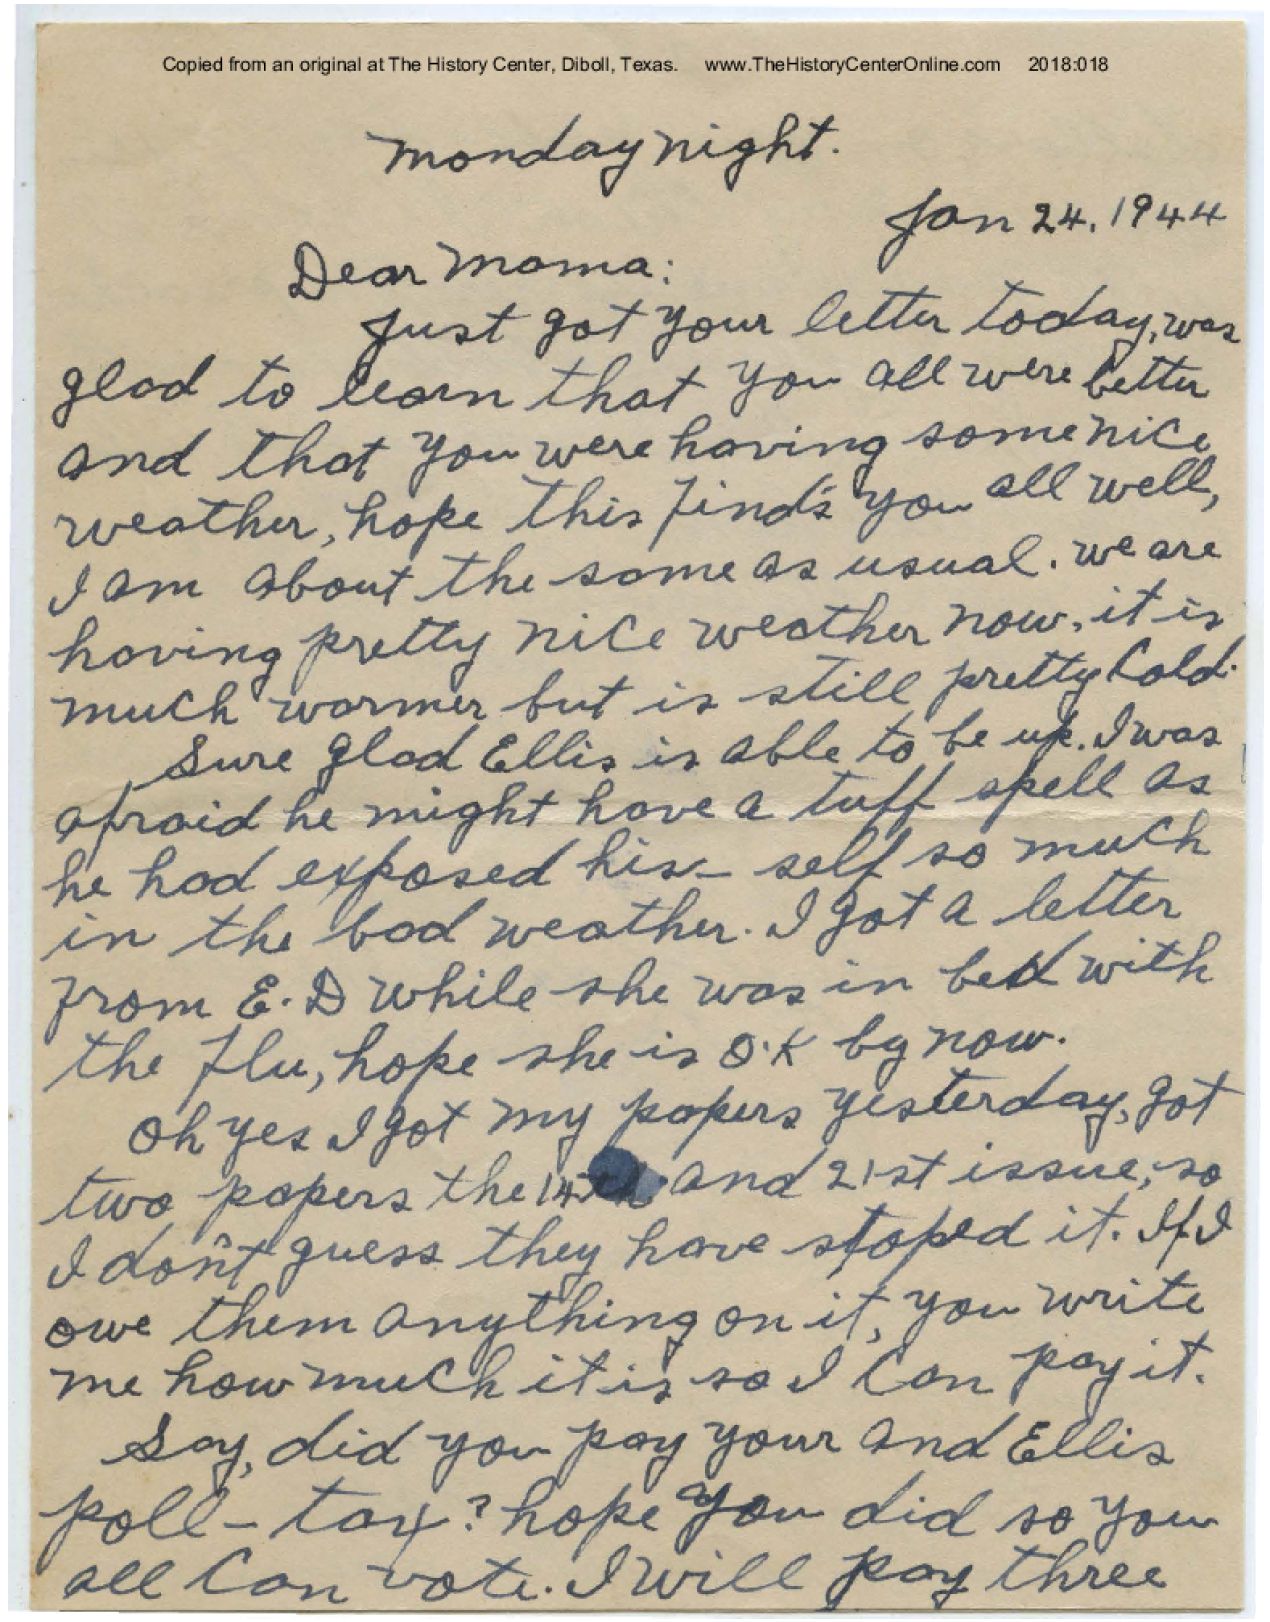 Copied from an original at The History Center, Diboll, Texas. www.TheHistoryCenterOnline.com 2018:018
Monday night.
Jan 24, 1944
Dear Mama:
Just got your letter today, was
glad to learn that you all were better
and that you were having some nice
weather, hope this find's you all well,
I am about the same as usual. we are
having pretty nice weather now, it is
much warmer but is still pretty Cold.
Sure glad Ellis is able to be up. I was
afraid he might have a tuff spell as
he had exposed his-self so much
in the bad weather. I got a letter
from E.D while she was in bed with
the flu, hope she is O.K by now.
Oh yes I got my papers yesterday, got
two papers the 14th and 21st issue, so
I don't guess they have stoped it. If I
owe them anything on it, you write
me how much it is so I Can pay it.
Say, did you pay your and Ellis
poll-tax? hope you did so you
all Can vote. I will pay three